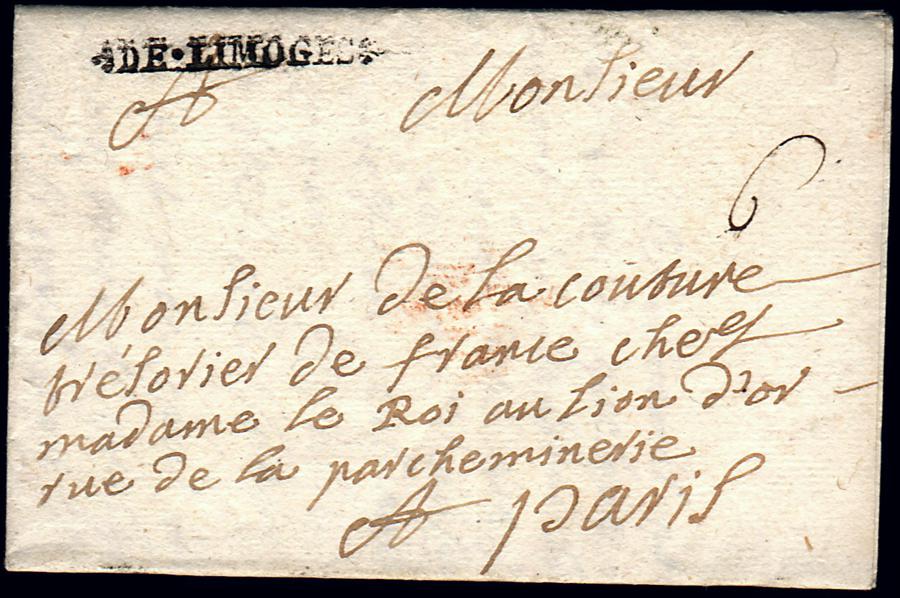 DE·LIMOGES
A Monsieur
6
Monsieur de la couture
trésorier de france chez
madame le Roi au lion d'or
rue de la parcheminerie
A paris